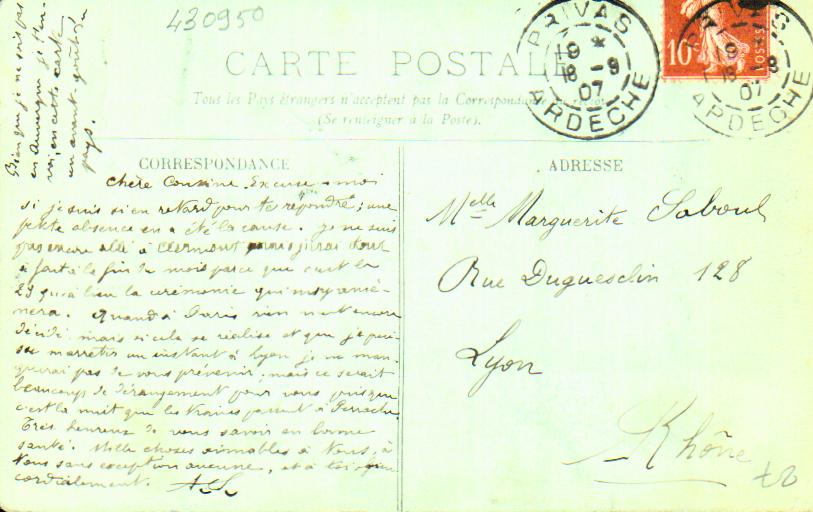 430950
CARTE POSTALE
Tous les Pays étrangers n'acceptent pas la Correspondance au recto
(Se renseigner à la Poste).
PRIVAS
18 *
8 - 9
07
ARDECHE
10
POSTES
PRIVAS
8
07
ARDECHE
Bien que je ne sois pas
en Auvergne je t'en-
voie cette carte
un avant goût du
pays.
CORRESPONDANCE
Chère Cousine. Excuse-moi
si je suis si en retard pour te répondre ; une
petite absence en a été la cause. Je ne suis
pas encore allé à Clermont mais j'irai tout
à fait à la fin du mois parce que c'est le
29 qu'a lieu la cérémonie qui m'y ramé-
nera. Quand à Paris rien n'est encore
décidé. mais si cela se réalise et que je puis-
se m'arrêter un instant à Lyon je ne man-
querai pas de vous prévenir, mais ce serait
beaucoup de dérangement pour vous puisque
c'est la nuit que les trains passent à Perrache.
Très heureux de vous savoir en bonne
santé. Mille choses aimables à Vous, à
Vous sans exception aucune, et à toi
cordialement.
ADRESSE
Melle Marguerite Saboul
Rue Duguesclin 128
Lyon
Rhône